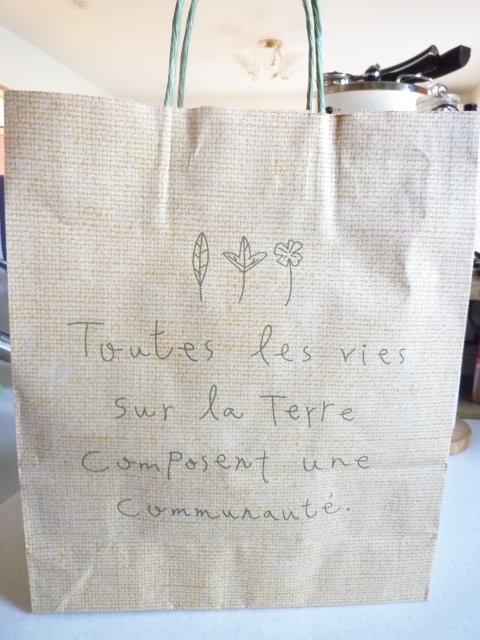 Toutes les vies
sur la Terre
composent une
communauté.